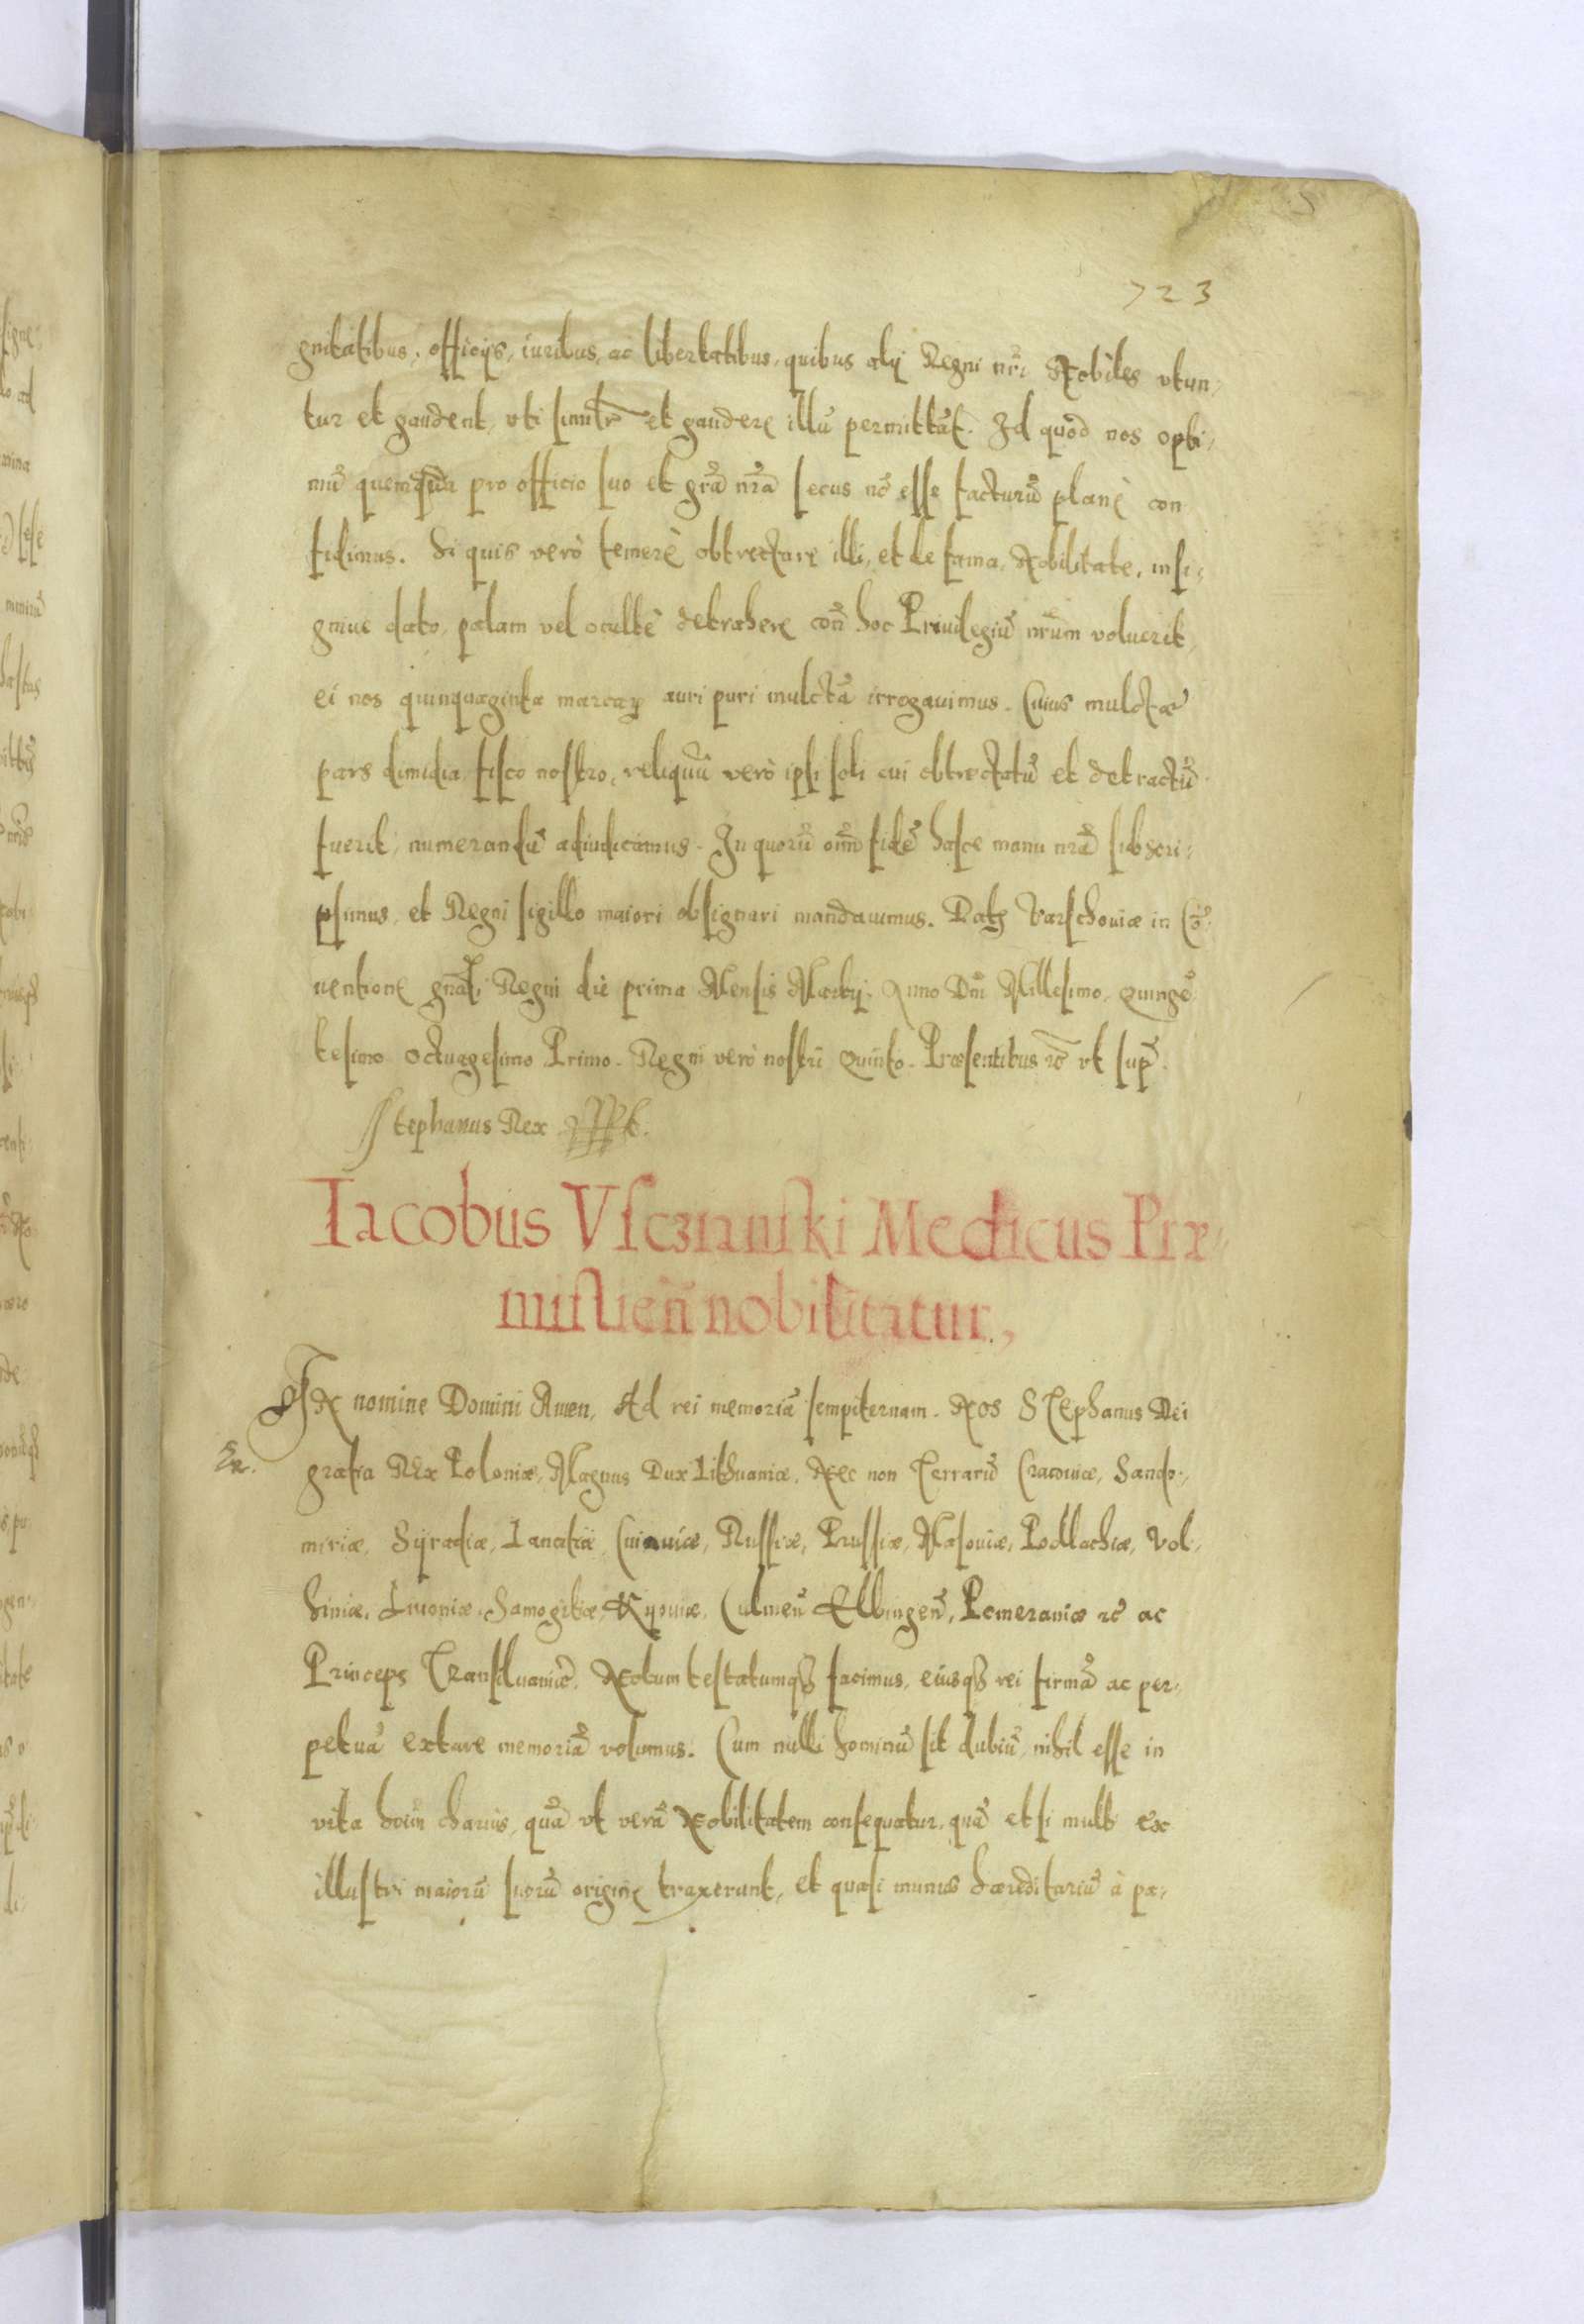 723
gnitatibus, officijs, iuribus, ac libertatibus, quibus alij Regni nr̃i Nobiles vtun,
tur et gaudent, vti simitr̃ et gaudere illũ permittãt. Id quod nos opti,
mũ quemquã pro officio suo et gr̃a nr̃a secus nõ esse facturũ planè con
fidimus. Si quis verò temerè obtrectare illi, et de fama, Nobilitate, insi,
gniue dato, palam vel occultè detrahere cõn hoc Priuilegiũ nr̃um voluerit,
ei nos quinquaginta marcaꝝ auri puri mulctã irrogauimus. Cuius mulctæ
pars dimidia fisco nostro, reliquũ verò ipsi soli cui obtrectatũ et detractũ
fuerit, numerandũ adiudicamus. In quorũ om̃ fidẽ hasce manu nr̃a subscri,
psimus, et Regni sigillo maiori obsignari mandauimus. Datꝭ Varschouiæ in Cõ,
uentione gnãli Regni die prima Mensis Martij. Anno Dñi Millesimo, Quingẽ,
tesimo Octuagesimo Primo. Regni verò nostri Quinto. Præsentibus ꝛc̃ vt supꝭ.
Stephanus Rex
Iacobus Vſczianſki Medicus Præ,
miſlien̄ nobilitatur,
IN nomine Domini Amen, Ad rei memoriã sempiternam. Nos Stephanus Dei
gratia Rex Poloniæ, Magnus Dux Lithuaniæ, Nec non Terrarũ Cracouiæ, Sando,,
miriæ, Syradiæ, Lancitiæ, Cuiauiæ, Russiæ, Prussiæ, Masouiæ, Podlachiæ, Vol,
hiniæ, Liuoniæ, Samogitiæ, Kyouiæ, Culmeñ Elbingeñ, Pomeraniæ ꝛc̃ ac
Princeps Transiluaniæ. Notum testatumqꝫ facimus, eiusqꝫ rei firmã ac per,
petuã extare memoriã volumus. Cum nulli hominũ sit dubiũ, nihil esse in
vita hoĩm charius, quã vt verã Nobilitatem consequatur, quã etsi multi ex
illustri maiorũ suorũ origine traxerunt, et quasi munus hæreditariũ à pa,